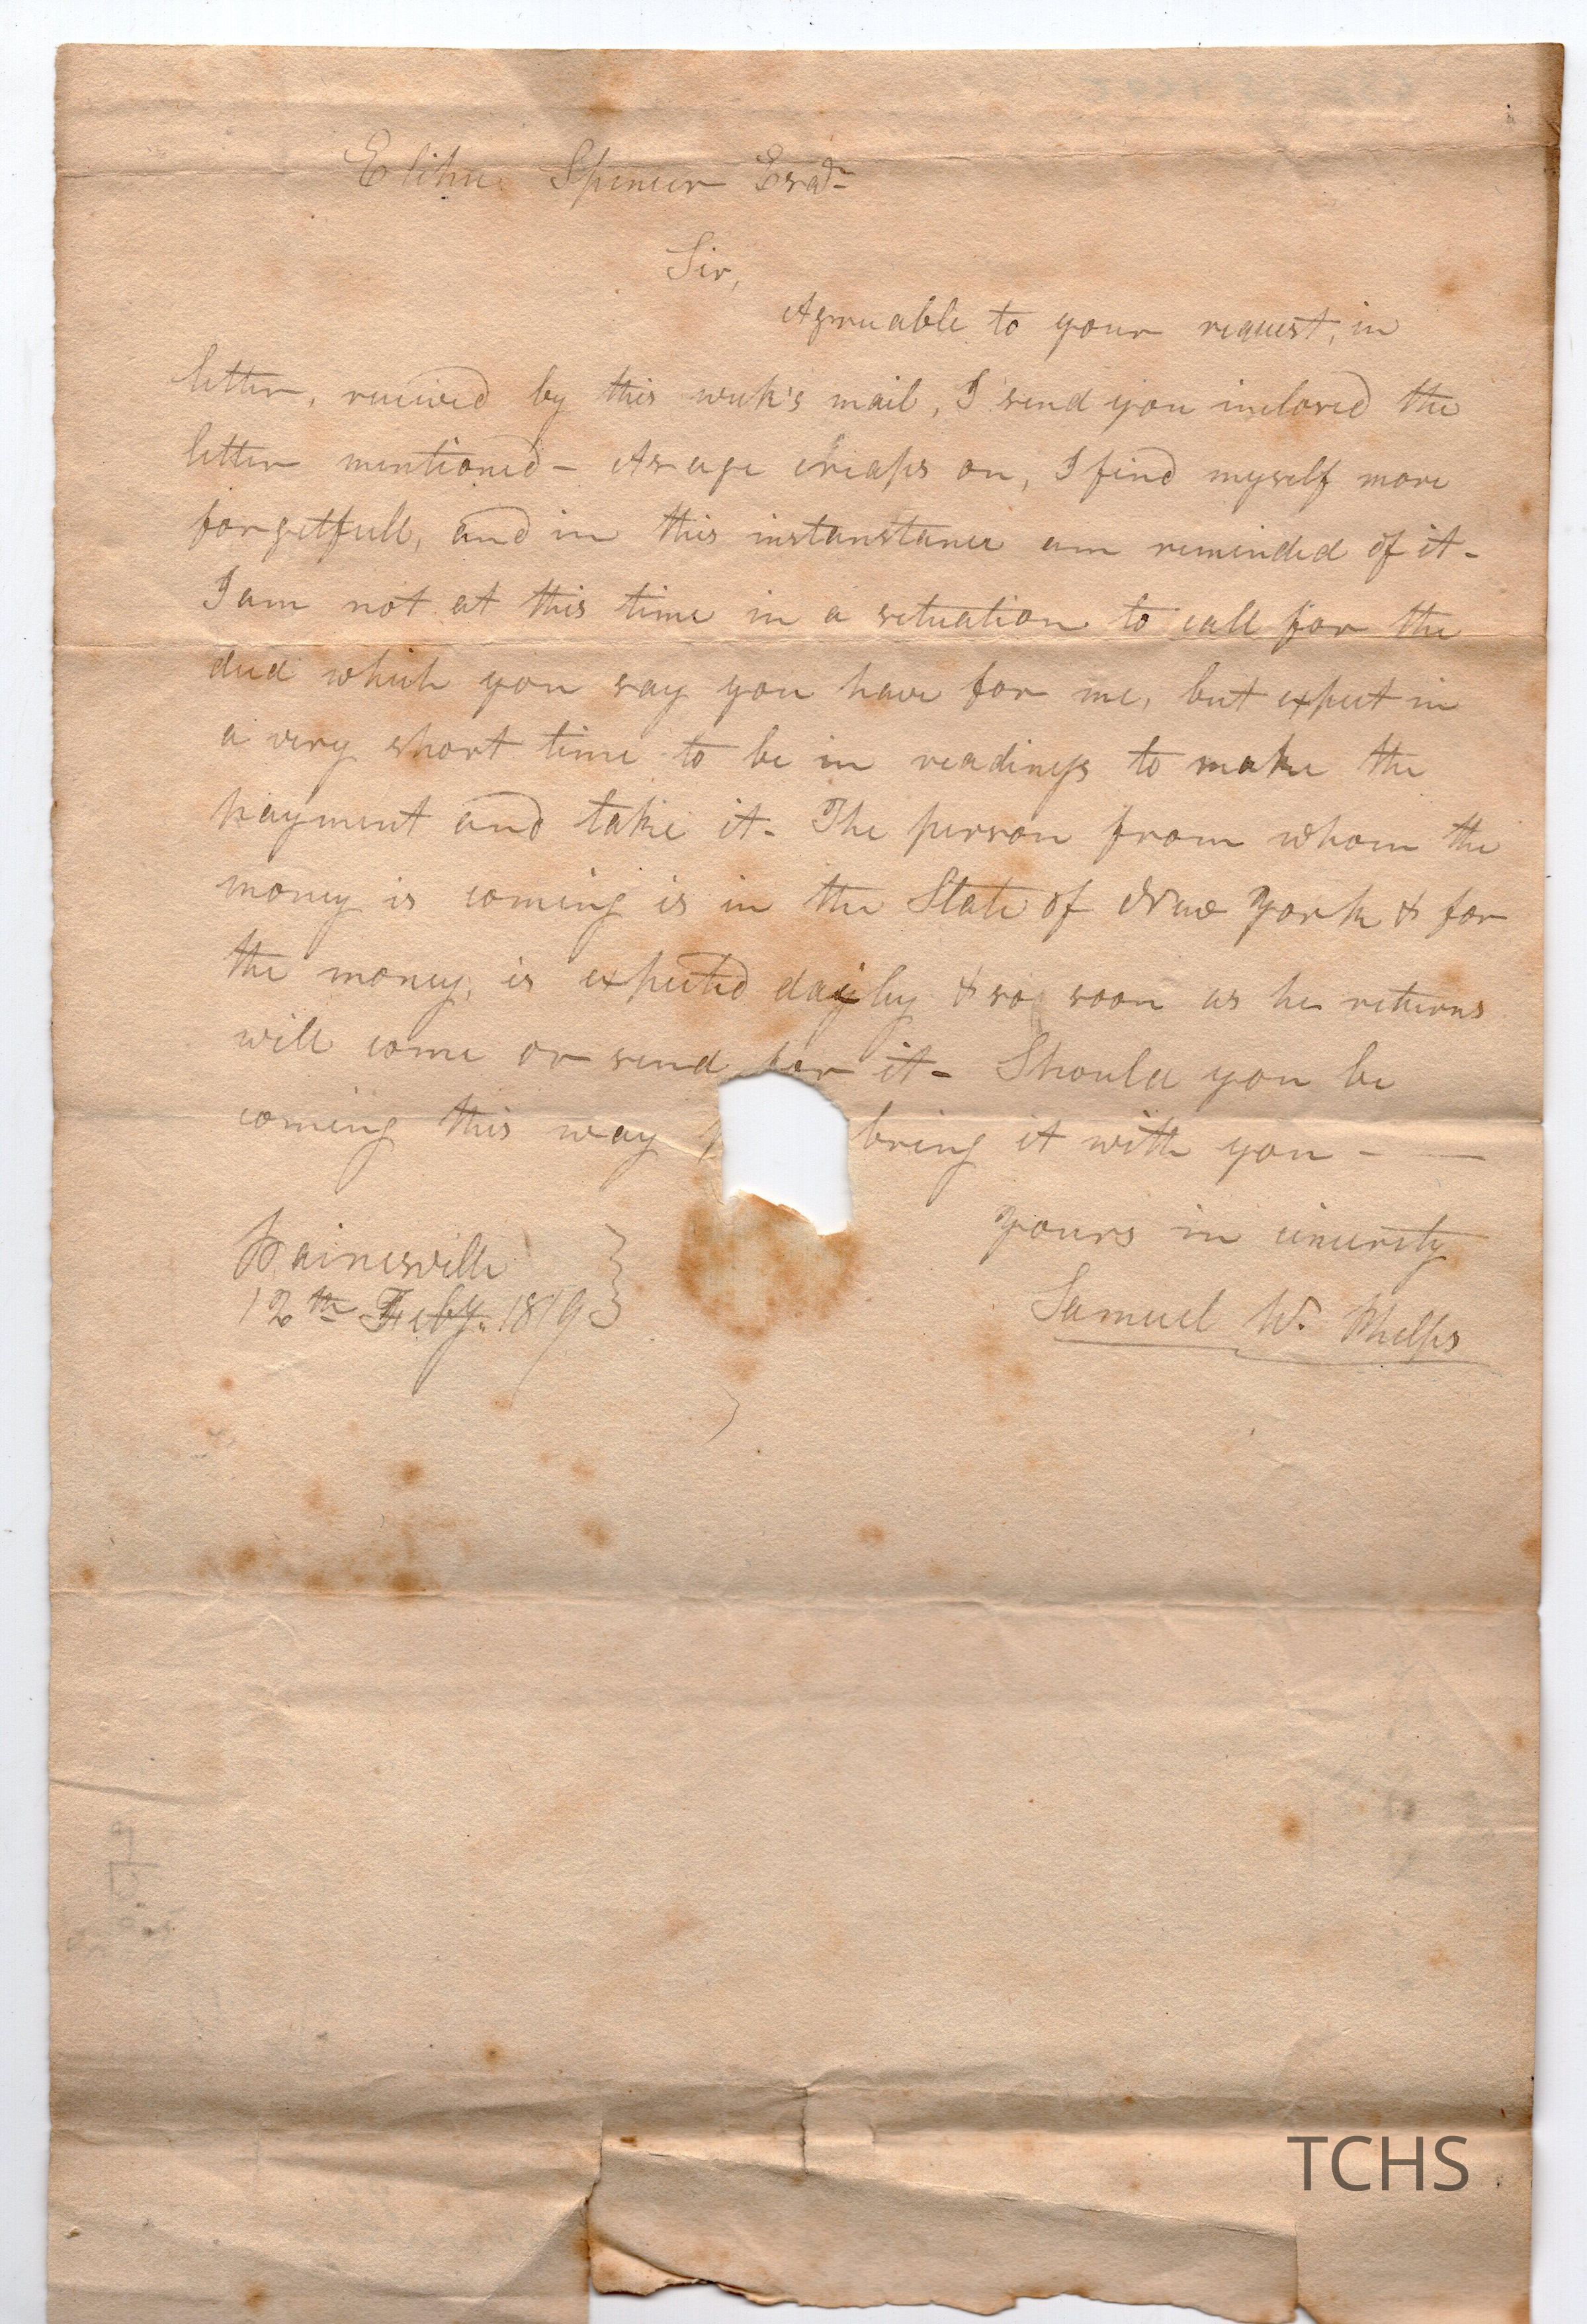 Elihu Spencer Esqr
Sir,
Agreeable to your request, in
letter, received by this week's mail, I send you inclosed the
letter mentioned - As age creaps on, I find myself more
forgetfull, and in this instanstance am reminded of it -
I am not at this time in a situation to call for the
deed which you say you have for me, but expect in
a very short time to be in readiness to make the
payment and take it - The person from whom the
money is coming is in the State of New York & for
the money, is expected daily & so soon as he returns
will come or send for it - Should you be
coming this way bring it with you -
Yours in cincerity
Painesville
12th Feby. 1819
Samuel W. Phelps
TCHS